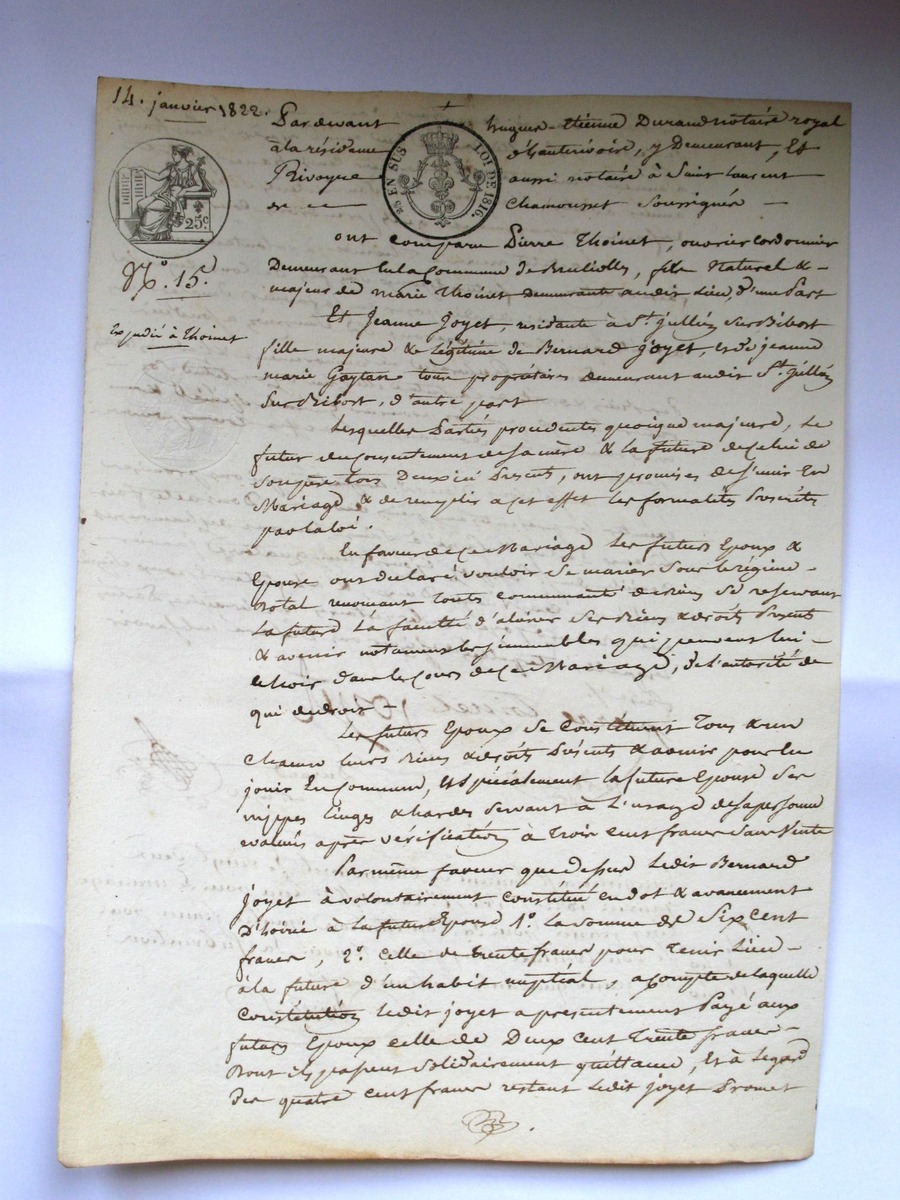 14. janvier 1822.
Pardevant hugues-étienne Durand notaire royal
à la résidence d'hauterivoire, y Demeurant, Et
Rivoyre aussi notaire à Saint Laurent
de Chamousset Soussignés
EN SUS
LOI DE 1816.
25c
N.º 15.
Expédié à Thoinet
ont comparu Pierre Thoinet, ouvrier Cordonnier
Demeurant en la Commune de Bruliolles, fils Naturel &
majeur de marie Thoinet demeurante audit Lieu, d'une Part
Et Jeanne Joyet, résidante à St. jullien Sur Bibost
fille majeure & légitime de Bernard Joyet, et de jeanne
marie Goytan tous propriétaires demeurant audit St. jullien
Sur Bibost, d'autre part
Lesquelles Parties procédentes quoique majeures, Le
futur du Consentement de sa mère & la future de Celui de
Son père tous Deux ici Présents, ont promis de S'unir En
Mariage & de remplir a cet effet les formalités Prescrites
par la loi.
En faveur de Ce Mariage Les futurs Epoux &
Epouse ont déclaré vouloir Se marier Sous le régime
Dotal renonçant toute communauté de biens Se réservant
La future La faculté d'aliéner Ses Biens & droits Présents
& avenir notamment les immeubles qui peuvent lui
échoir dans le Cours de Ce Mariage, de l'autorité de
qui de droit
Les futurs Epoux Se Constituent Tous & un
Chacun leurs Biens & droits Présents & avenir pour En
jouir En Commun, Et Spécialement la future Epouse Ses
nippes Linges & hardes Servant à l'usage de sa personne
évalués après vérification à Trois Cent francs Sans Vente
Par même faveur que dessus Ledit Bernard
Joyet à volontairement Constitué en dot & avancement
D'hoirie à la future Epouse 1º. La somme de Six Cent
francs, 2º. Celle de trente francs pour Tenir Lieu
à la future d'un habit nuptial, a Compte de laquelle
Constitution Ledit joyet a présentement Payé aux
futurs Epoux Celle de Deux Cent Trente francs
Dont ils passent Solidairement quittance, Et à L'égard
Des quatre Cent francs restant Ledit joyet Promet